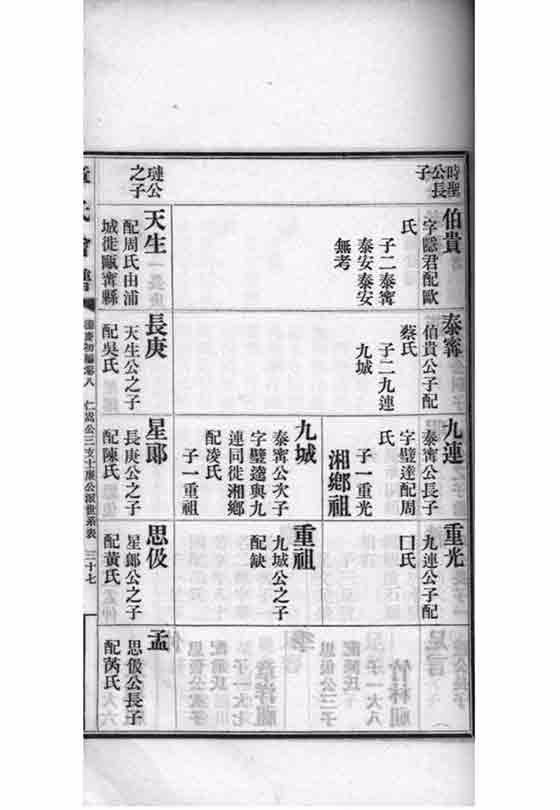 時聖
公長
子
伯貴
字隱君配歐
氏
子二泰寗
泰安泰安
無考
泰寗
伯貴公子配
蔡氏
子二九連
九城
九連
泰寗公長子
字璧達配周
氏
子一重光
湘鄉祖
九城
泰寗公次子
字璧遠與九
連同徙湘鄉
配凌氏
子一重祖
重光
九連公子配
囗氏
重祖
九城公之子
配缺
璉公
之子
天生
配周氏由浦
城徙甌寗縣
長庚
天生公之子
配吳氏
星郞
長庚公之子
配陳氏
思伋
星郞公之子
配黃氏
孟
思伋公長子
配芮氏
氏會譜
初編卷八
仁嵩公三支士廉公派世系表
三十七